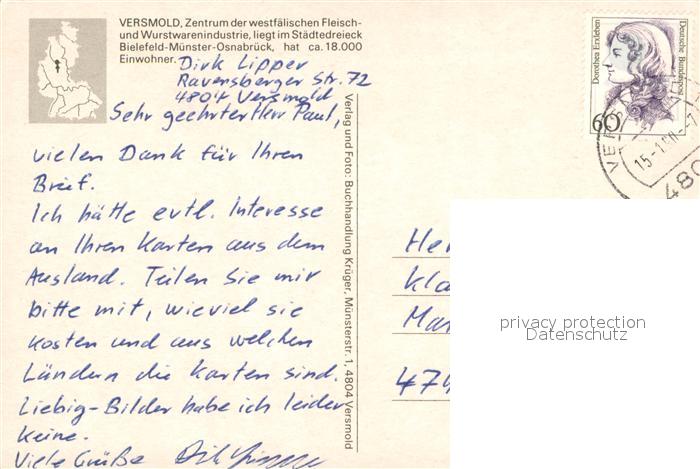 VERSMOLD, Zentrum der westfälischen Fleisch-
und Wurstwarenindustrie, liegt im Städtedreieck
Bielefeld-Münster-Osnabrück, hat ca. 18.000
Einwohner.
Dirk Lipper
Ravensberger Str. 72
4804 Versmold
Sehr geehrter Herr Paul,
vielen Dank für Ihren
Brief.
Ich hätte evtl. Interesse
an Ihren Karten aus dem
Ausland. Teilen Sie mir
bitte mit, wieviel sie
kosten und aus welchen
Ländern die Karten sind.
Liebig-Bilder habe ich leider
keine.
Viele Grüße
Verlag und Foto: Buchhandlung Krüger, Münsterstr. 1, 4804 Versmold
Dorothea Erxleben
Deutsche Bundespost
60
VERS
15.-1.
480
Her
Kla
Mar
474
privacy protection
Datenschutz